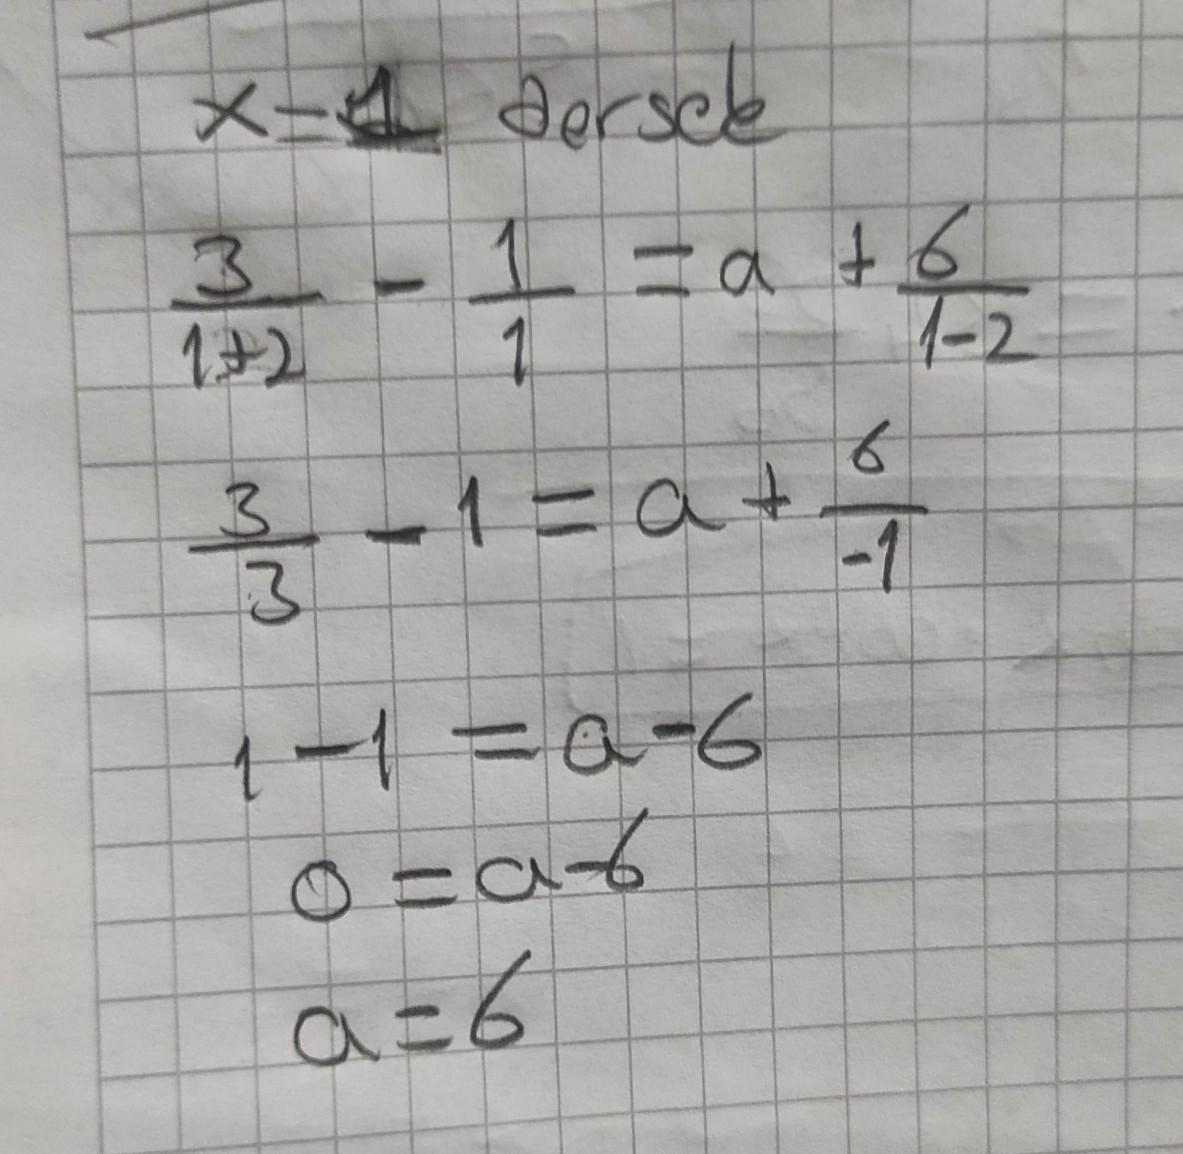 x=1 dersek
3/(1+2) - 1/1 = a + 6/(1-2)
3/3 - 1 = a + 6/-1
1 - 1 = a - 6
0 = a - 6
a = 6